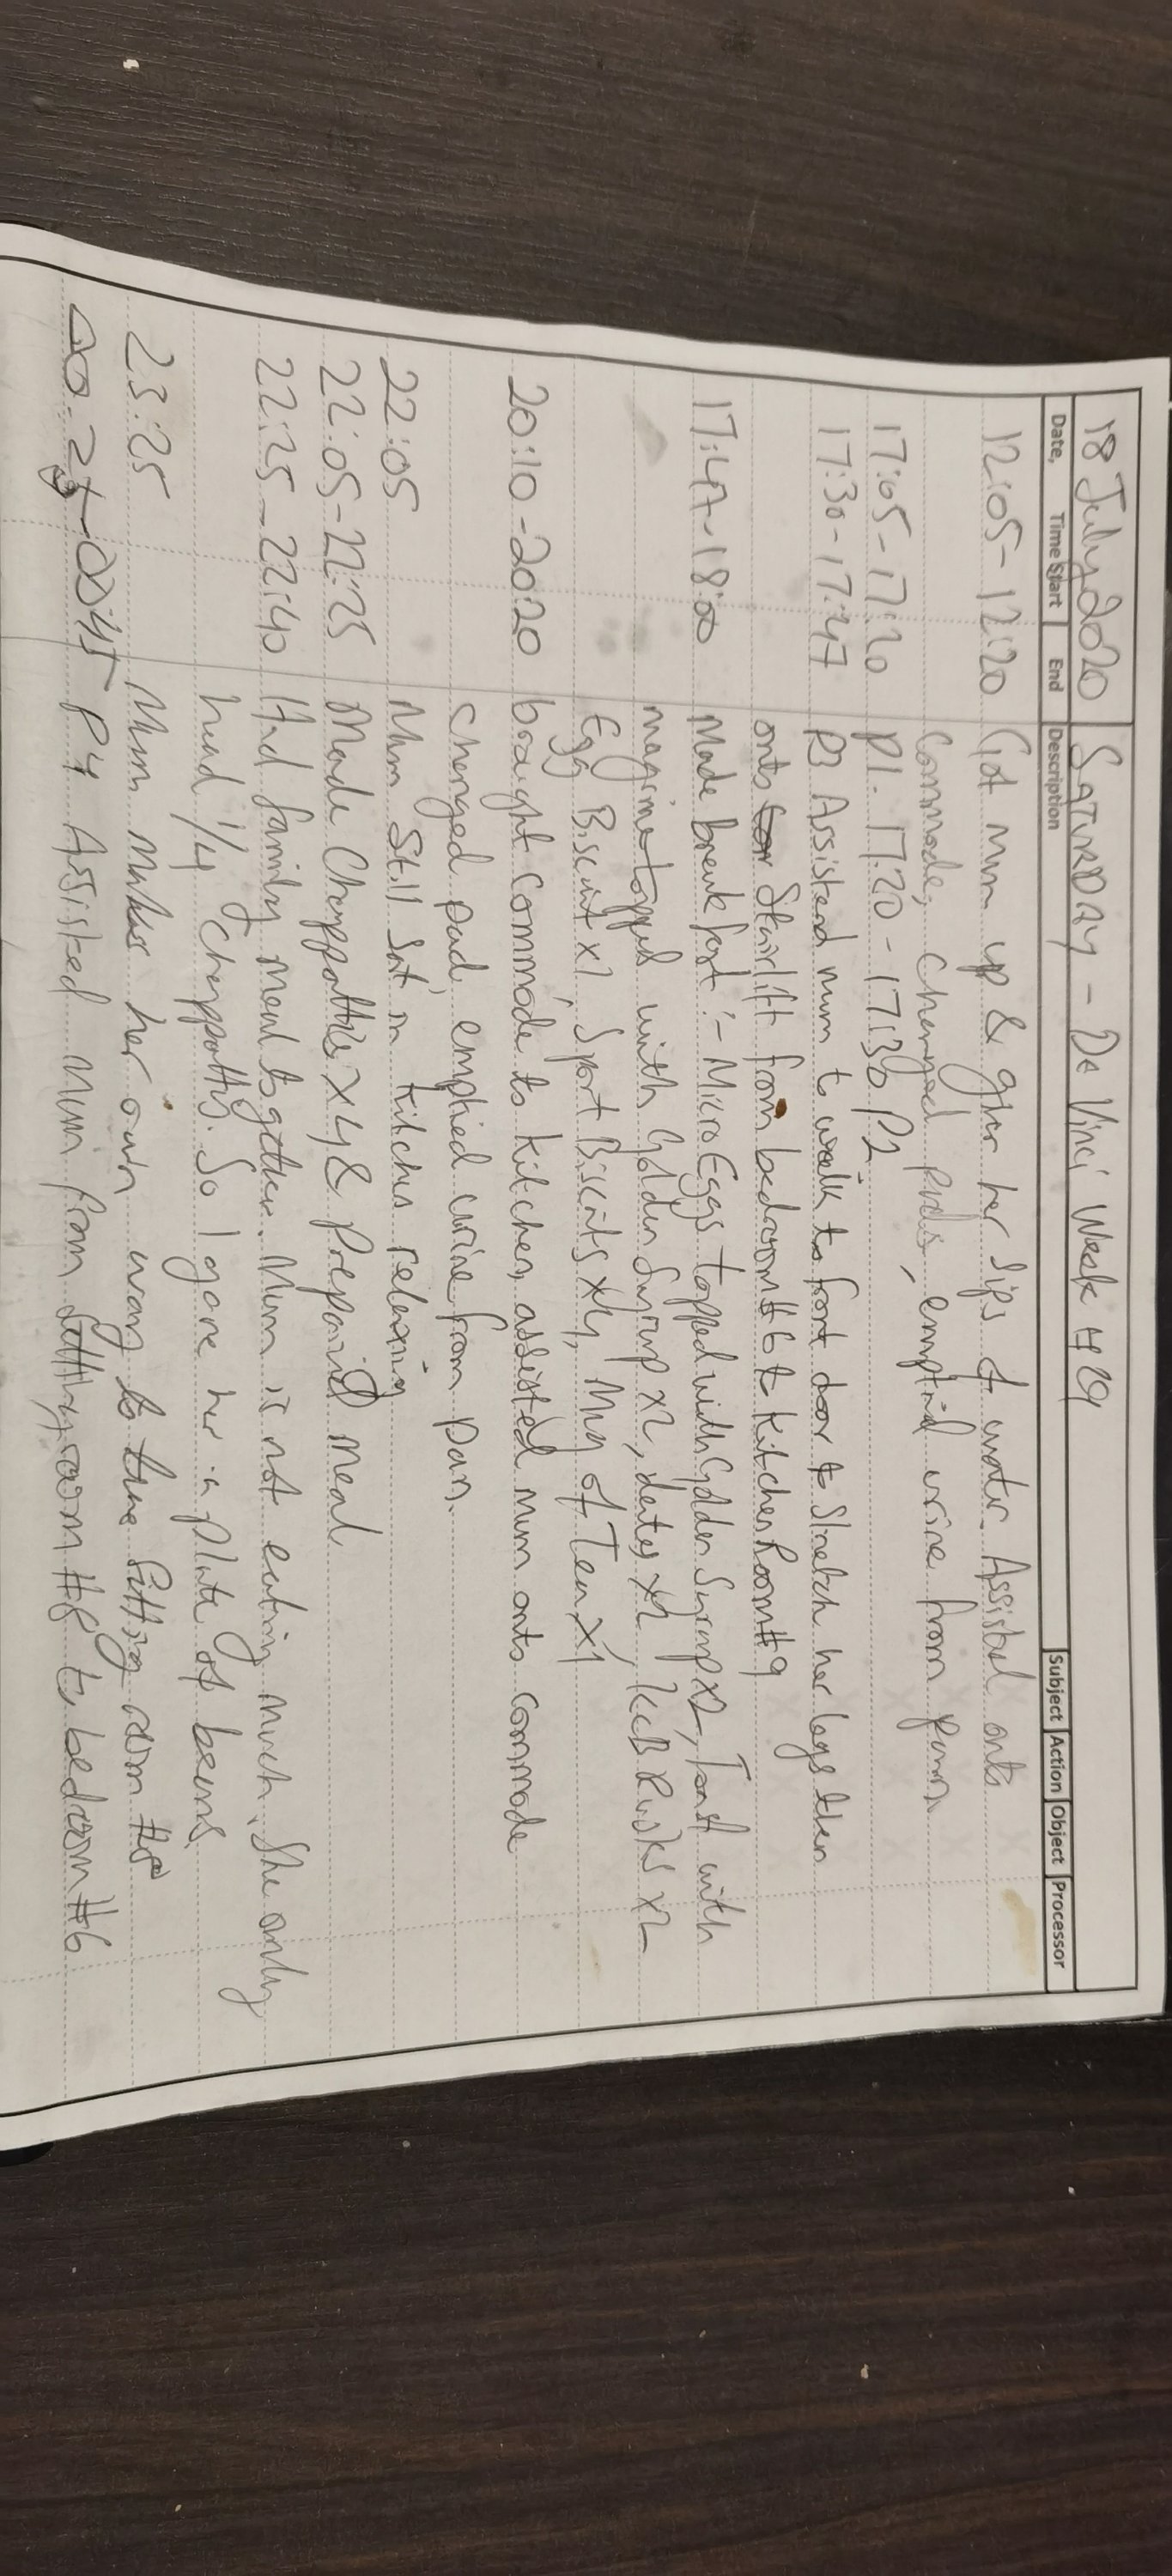 18 July 2020 SATURDAY - De Vinci Week #29
Date, Time Start End Description Subject Action Object Processor
12:05 - 12:20 Got mum up & give her sips of water. Assisted onto
Commode, Changed pads, emptied urine from pan.
17:05 - 17:20 P1. 17:20 - 17:30 P2
17:30 - 17:47 P3 Assisted mum to walk to front door to stretch her legs then
onto Stairlift from bedroom #6 to Kitchen Room #9
17:47 - 18:00 Made breakfast :- Micro Eggs topped with Golden Syrup x2, Toast with
magrine topped with Golden Syrup x2, dates x2, Rusks x2
Egg Biscuit x1, Sport Biscuits x4, Mug of Tea x1
20:10 - 20:20 brought Commode to kitchen, assisted mum onto commode
Changed pad, emptied urine from pan.
22:05 Mum Still Sat in kitchen relaxing
22:05 - 22:25 Made Chappatties x4 & Prepared meal
22:25 - 22:40 Had family meal together. Mum is not eating much, She only
had 1/4 Chappatty. So I gave her a plate of beans
23:25 Mum makes her own way to Sitting room #8
P4 Assisted Mum from Sitting room #8 to bedroom #6